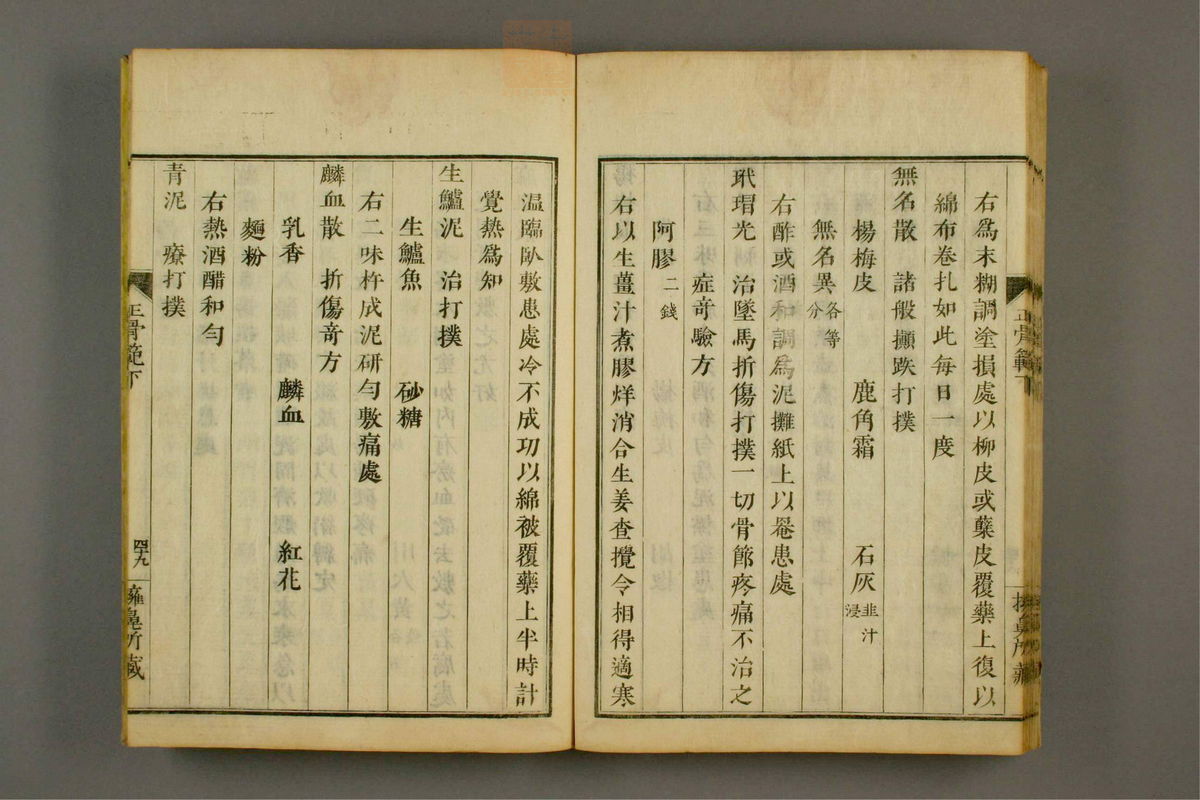 右爲末糊調塗損處以柳皮或蘗皮覆藥上復以
綿布卷扎如此每日一度
無名散 諸般攧跌打撲
楊梅皮 鹿角霜 石灰韭汁浸
無名異各等分
右酢或酒和調爲泥攤紙上以罨患處
玳瑁光 治墜馬折傷打撲一切骨節疼痛不治之
症竒驗方
阿膠二錢
右以生薑汁煮膠烊消合生姜查攪令相得適寒
温臨臥敷患處冷不成功以綿被覆藥上半時許
覺熱爲知
生鱸泥 治打撲
生鱸魚 砂糖
右二味杵成泥研勻敷痛處
麟血散 折傷竒方
乳香 麟血 紅花
麵粉
右熱酒醋和勻
青泥 療打撲
正骨範下
四十九